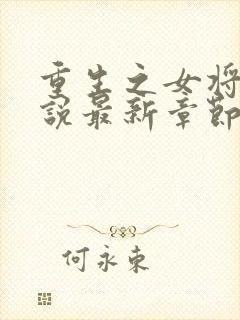 重生之女将
說最新章節
何永東